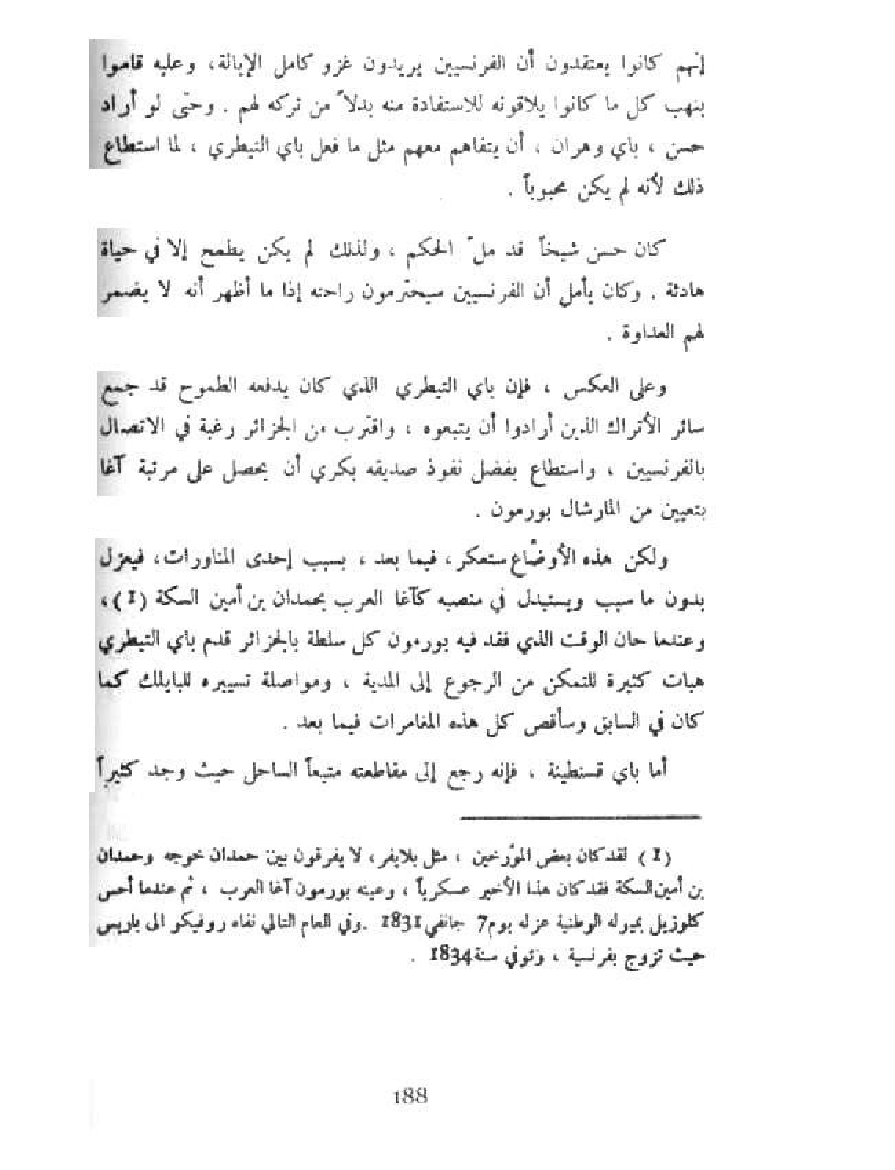 إنهم كانوا يعتقدون أن الفرنسيين يريدون غزو كامل الإيالة، وعليه قاموا
بنهب كل ما كانوا يلاقونه للاستفادة منه بدلاً من تركه لهم . وحتى لو أراد
حسن ، باي وهران ، أن يتفاهم معهم مثل ما فعل باي التيطري ، لما استطاع
ذلك لأنه لم يكن محبوباً .
كان حسن شيخاً قد ملّ الحكم ، ولذلك لم يكن يطمح إلا في حياة
هادئة . وكان يأمل أن الفرنسيين سيحترمون راحته إذا ما أظهر أنه لا يضمر
لهم العداوة .
وعلى العكس ، فإن باي التيطري الذي كان يدفعه الطموح قد جمع
سائر الأتراك الذين أرادوا أن يتبعوه ، واقترب من الجزائر رغبة في الاتصال
بالفرنسيين ، واستطاع بفضل نفوذ صديقه بكري أن يحصل على مرتبة آغا
بتعيين من المارشال بورمون .
ولكن هذه الأوضاع ستعكر، فيما بعد ، بسبب إحدى المناورات، فيعزل
بدون ما سبب ويستبدل في منصبه كآغا العرب بحمدان بن أمين السكة (1)،
وعندما حان الوقت الذي فقد فيه بورمون كل سلطة بالجزائر قدم باي التيطري
هبات كثيرة للتمكن من الرجوع إلى المدية ، ومواصلة تسييره للبايلك كما
كان في السابق وسأقص كل هذه المغامرات فيما بعد .
أما باي قسنطينة ، فإنه رجع إلى مقاطعته متبعاً الساحل حيث وجد كثيراً
(1) لقد كان بعض المؤرخين ، مثل بلايفر، لا يفرقون بين حمدان خوجه وحمدان
بن أمين السكة فقد كان هذا الأخير عسكرياً ، وعينه بورمون آغا العرب ، ثم عندما أحس
كلوزيل بميوله الوطنية عزله يوم 7 جانفي 1831 .وفي العام التالي نفاه روفيكو الى باريس
حيث تزوج بفرنسية ، وتوفي سنة 1834 .
188